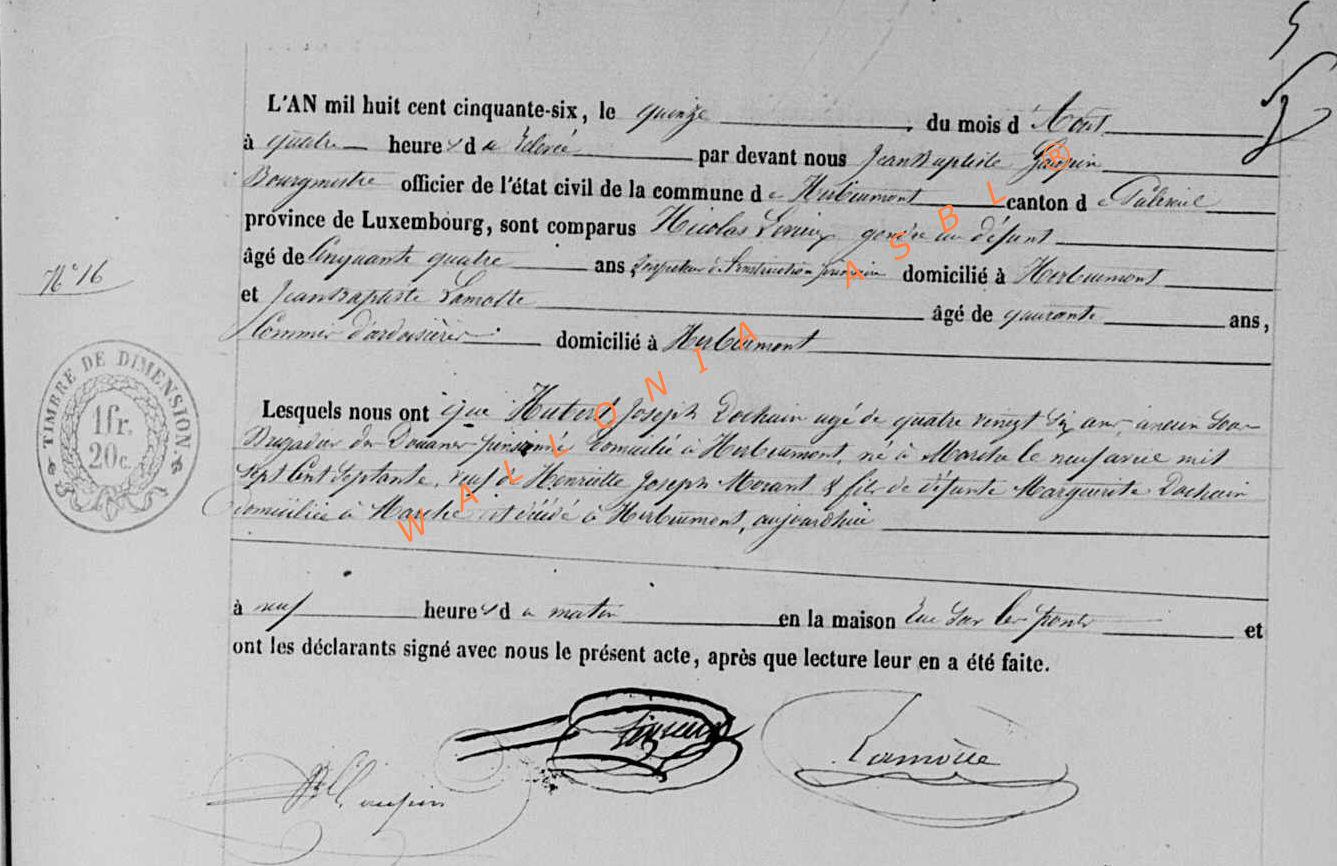 L'AN mil huit cent cinquante-six, le quinze du mois d'Août
à quatre heures du par devant nous Jean Baptiste
Bourgmestre officier de l'état civil de la commune de Herbeumont canton de Paliseul
province de Luxembourg, sont comparus Nicolas gendre du défunt
âgé de Cinquante quatre ans Inspecteur domicilié à Herbeumont
et Jean Baptiste Lamotte âgé de quarante ans,
Commis d'ardoisières domicilié à Herbeumont
Lesquels nous ont que Hubert Joseph Dochain agé de quatre vingt six ans, ancien Sous
Brigadier des Douanes pensionné domicilié à Herbeumont, né à Marche le neuf avril mil
sept Cent Septante, veuf de Henriette Joseph Morant & fils de défunte Marguerite Dochain
domiciliée à Marche est décédé à Herbeumont, aujourd'hui
à neuf heures du matin en la maison Rue Sur les ponts et
ont les déclarants signé avec nous le présent acte, après que lecture leur en a été faite.
Lamotte
N° 16
TIMBRE DE DIMENSION.
1 fr.
20 c.
WALLONIA ASBL ®